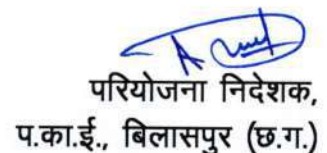 परियोजना निदेशक,
प.का.ई., बिलासपुर (छ.ग.)